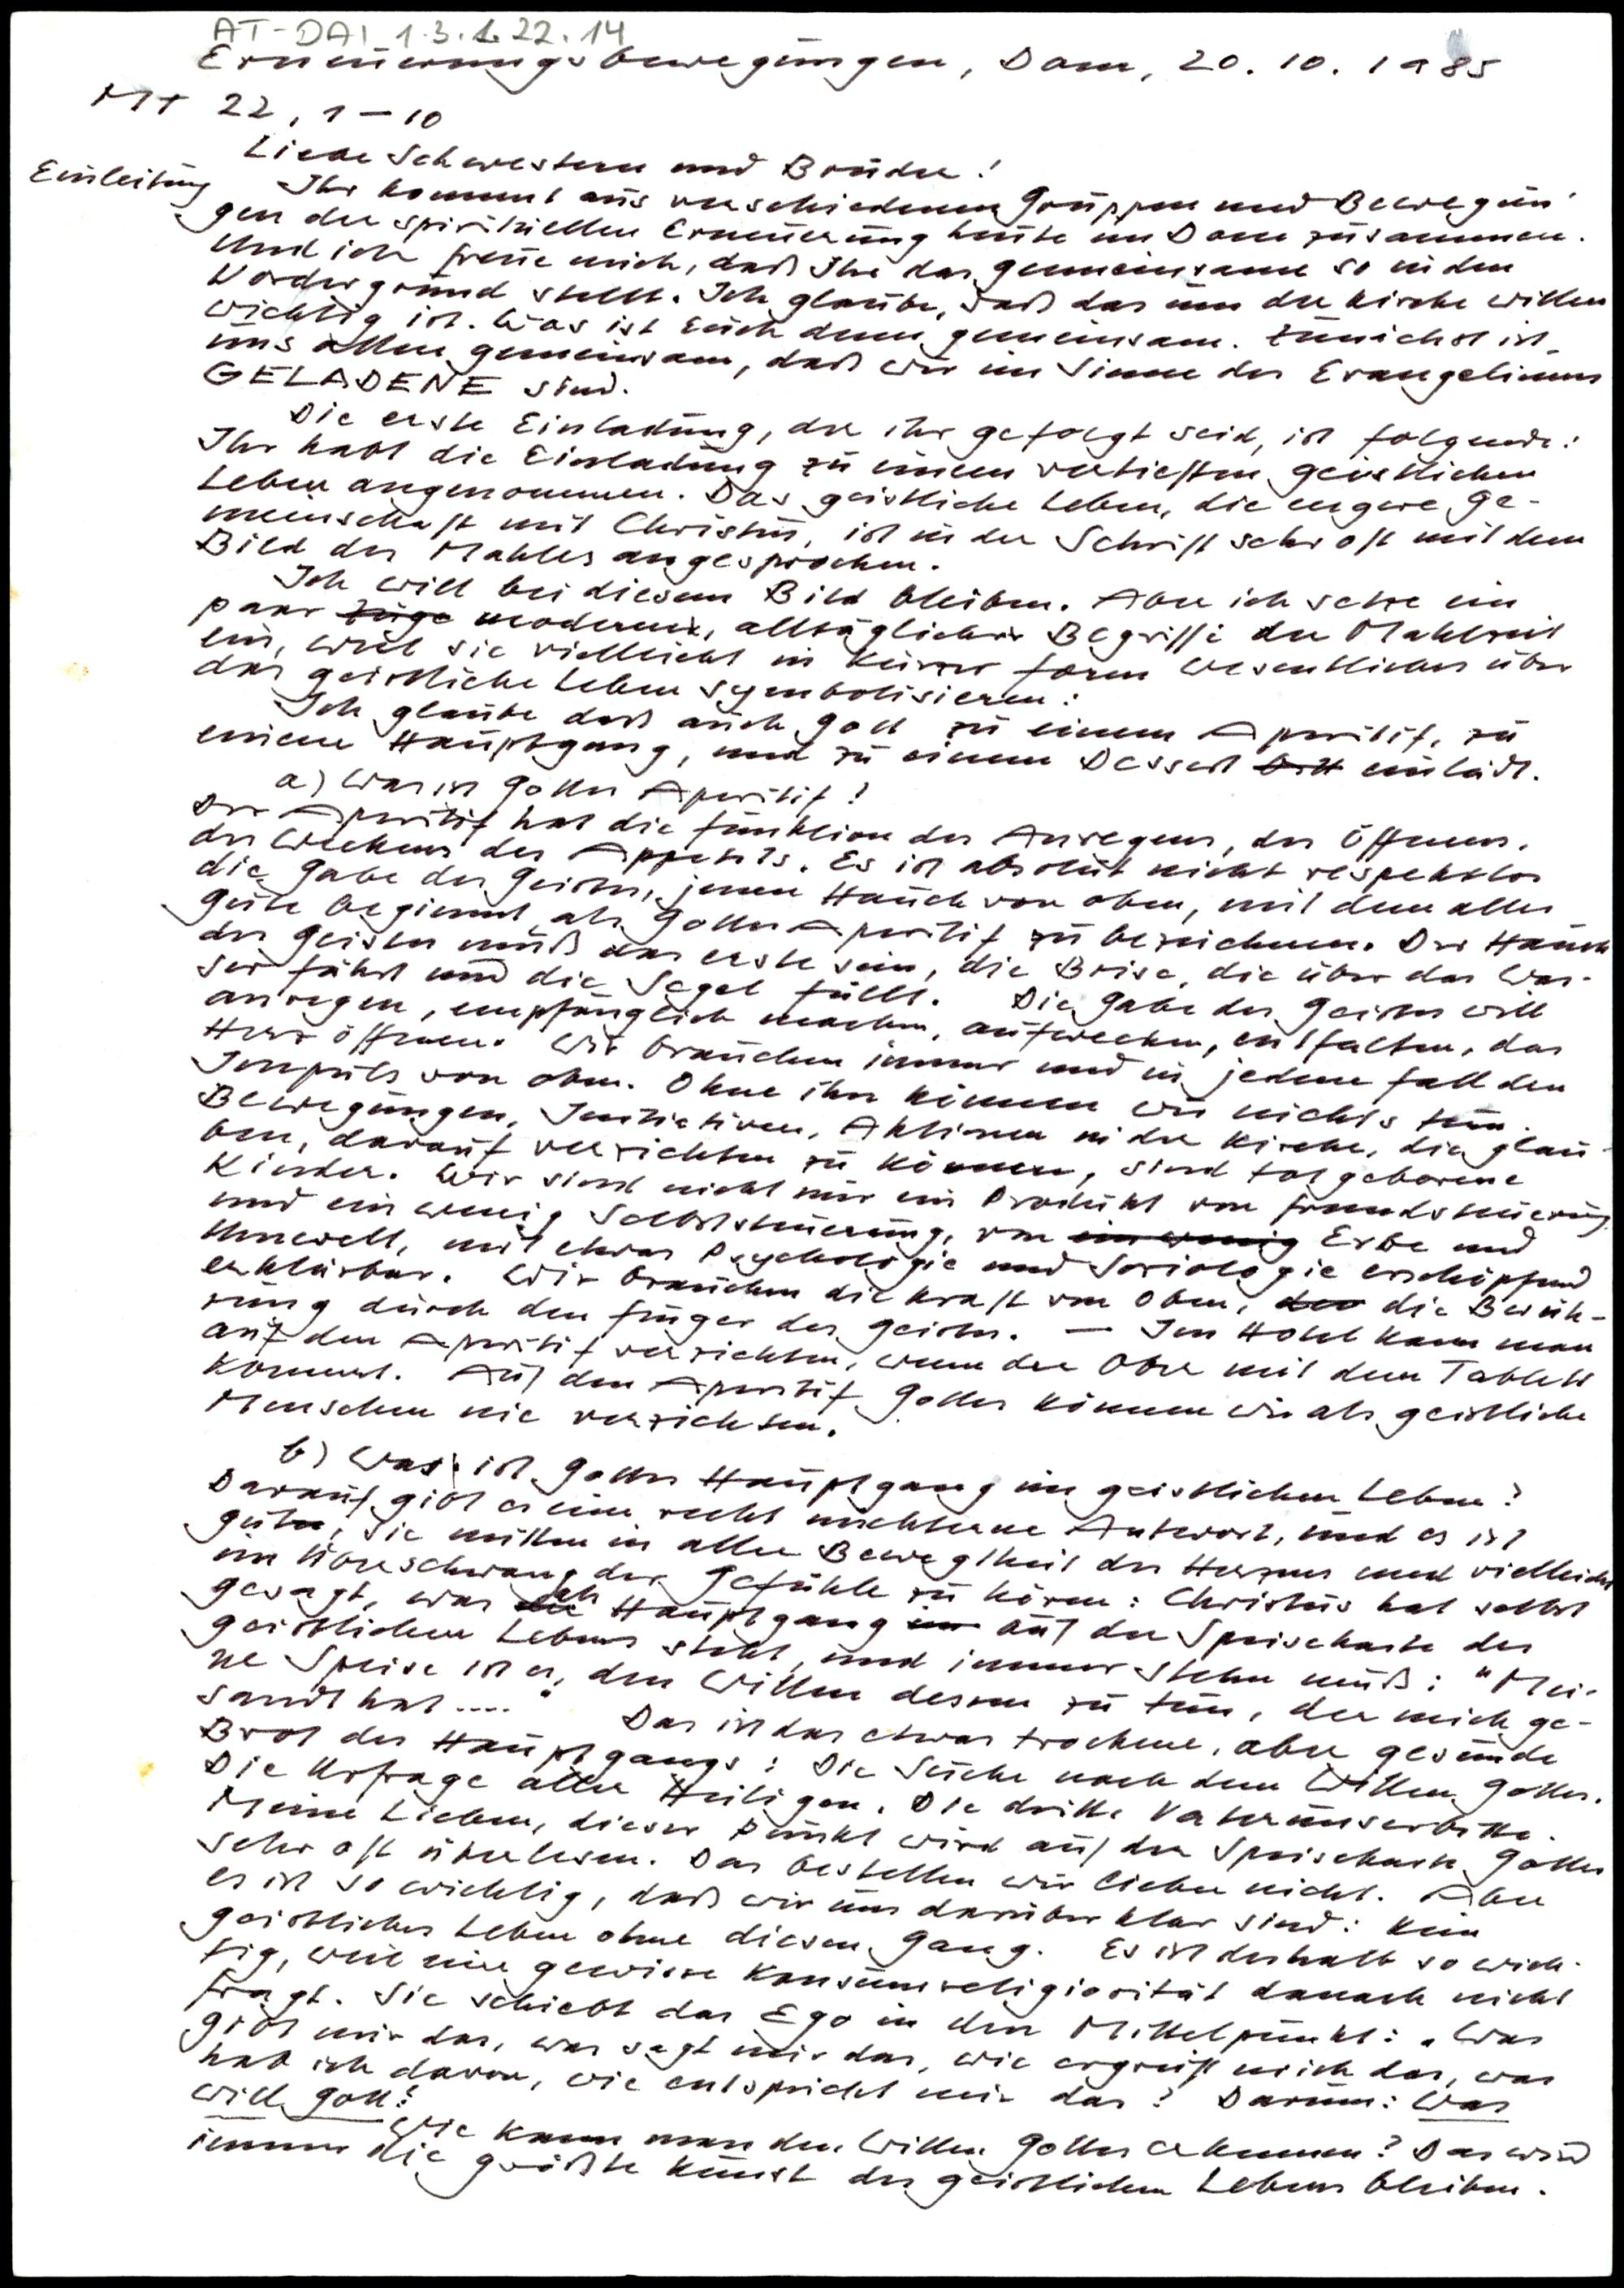 AT-DAI 1.3.1.22.14
Erneuerungsbewegungen, Dom, 20.10.1985
Mt 22, 1-10
Liebe Schwestern und Brüder!
Einleitung Ihr kommt aus verschiedenen Gruppen und Bewegun
gen der spirituellen Erneuerung heute im Dom zusammen.
Und ich freue mich, daß Ihr das gemeinsame so in den
Vordergrund stellt. Ich glaube, daß das um der Kirche willen
wichtig ist. Was ist Euch denn gemeinsam. Zunächst ist
uns allen gemeinsam, daß wir im Sinne des Evangeliums
GELADENE sind.
Die erste Einladung, der ihr gefolgt seid, ist folgende:
Ihr habt die Einladung zu einem vertieften geistlichen
Leben angenommen. Das geistliche Leben, die engere Ge-
meinschaft mit Christus, ist in der Schrift sehr oft mit dem
Bild des Mahles angesprochen.
Ich will bei diesem Bild bleiben. Aber ich setze ein
paar Züge moderner, alltäglicher Begriffe der Mahlzeit
ein, weil sie vielleicht in kurzer Form wesentliches über
das geistliche Leben symbolisieren:
Ich glaube daß auch Gott zu einem Aperitif, zu
einem Hauptgang, und zu einem Dessert einlädt.
a) Was ist Gottes Aperitif?
Der Aperitif hat die Funktion des Anregens, des Öffnens,
des Weckens des Appetits. Es ist absolut nicht respektlos
die Gabe des Geistes, jenen Hauch von oben, mit dem alles
Gute beginnt, als Gottes Aperitif zu bezeichnen. Der Hauch
des Geistes muß das erste sein, die Brise, die über das Was-
ser fährt und die Segel füllt. Die Gabe des Geistes will
anregen, empfänglich machen, aufwecken, entfalten, das
Herz öffnen. Wir brauchen immer und in jedem Fall den
Impuls von oben. Ohne ihn können wir nichts tun.
Bewegungen, Initiativen, Aktionen in der Kirche, die glau-
ben, darauf verzichten zu können, sind totgeborene
Kinder. Wir sind nicht nur ein Produkt von Fremdsteuerung
und ein wenig Selbststeuerung, von ein wenig Erbe und
Umwelt, mit etwas Psychologie und Soziologie erschöpfend
erklärbar. Wir brauchen die Kraft von oben, den die Berüh-
rung durch den Finger des Geistes. — Im Hotel kann man
auf den Aperitif verzichten, wenn der Ober mit dem Tablett
kommt. Auf den Aperitif Gottes können wir als geistliche
Menschen nie verzichten.
b) Was ist Gottes Hauptgang im geistlichen Leben?
Darauf gibt es eine recht nüchterne Antwort, und es ist
gut, sie mitten in aller Bewegtheit des Herzens und vielleicht
im Überschwang der Gefühle zu hören: Christus hat selbst
gesagt, was als Hauptgang im auf der Speisekarte des
geistlichen Lebens steht, und immer stehn muß: "Mei-
ne Speise ist es, den Willen dessen zu tun, der mich ge-
sandt hat...." Das ist das etwas trockene, aber gesunde
Brot des Hauptgangs: Die Suche nach dem Willen Gottes.
Die Urfrage aller Heiligen. Die dritte Vaterunserbitte.
Meine Lieben, dieser Punkt wird auf der Speisekarte Gottes
sehr oft überlesen. Das bestellen wir lieber nicht. Aber
es ist so wichtig, daß wir uns darüber klar sind: Kein
geistliches Leben ohne diesen Gang. Es ist deshalb so wich-
tig, weil eine gewisse Konsumreligiosität danach nicht
fragt. Sie schiebt das Ego in den Mittelpunkt: „Was
gibt mir das, was sagt mir das, wie ergreift mich das, was
hab ich davon, wie entspricht mir das? Darum: Was
will Gott?
Wie kann man den Willen Gottes erkennen? Das wird
immer die größte Kunst des geistlichen Lebens bleiben.